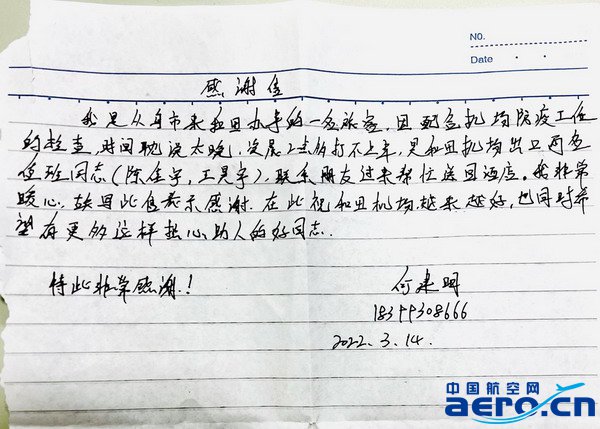 NO.
Date
感谢信
我是从乌市来和田办事的一名旅客,因配合机场防疫工作
的检查,时间耽误太晚,凌晨2点多打不上车,是和田机场出卫两名
值班同志(陈金宇,王昊宇),联系朋友过来帮忙送回酒店。我非常
暖心,故留此信表示感谢。在此祝和田机场越来越好,也同时希
望有更多这样热心助人的好同志。
特此非常感谢!
何建明
18399308666
2022.3.14.
中国航空网
aero.cn